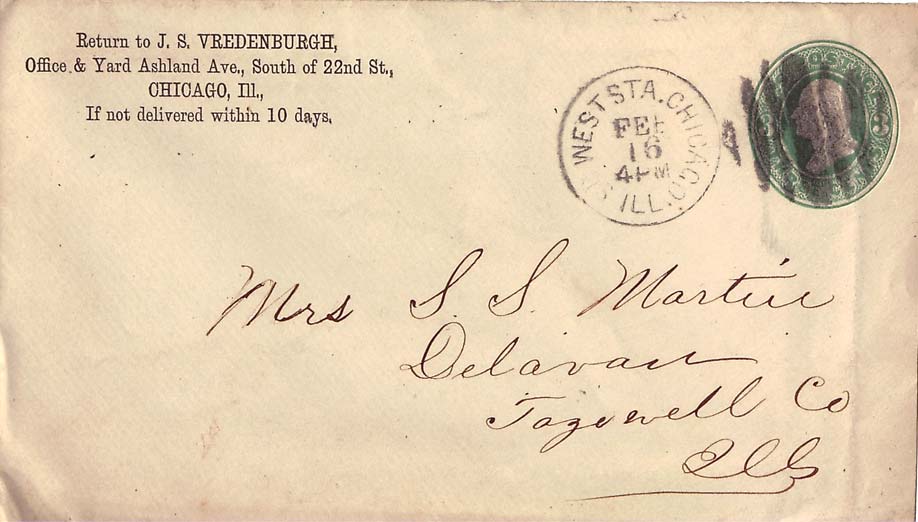 Return to J. S. VREDENBURGH,
Office & Yard Ashland Ave., South of 22nd St.,
CHICAGO, Ill.,
If not delivered within 10 days.
WEST STA. CHICAGO. ILL.
FEB
16
4 PM
POSTAGE
Mrs S. S. Martin
Delavan
Tazewell Co
Ills